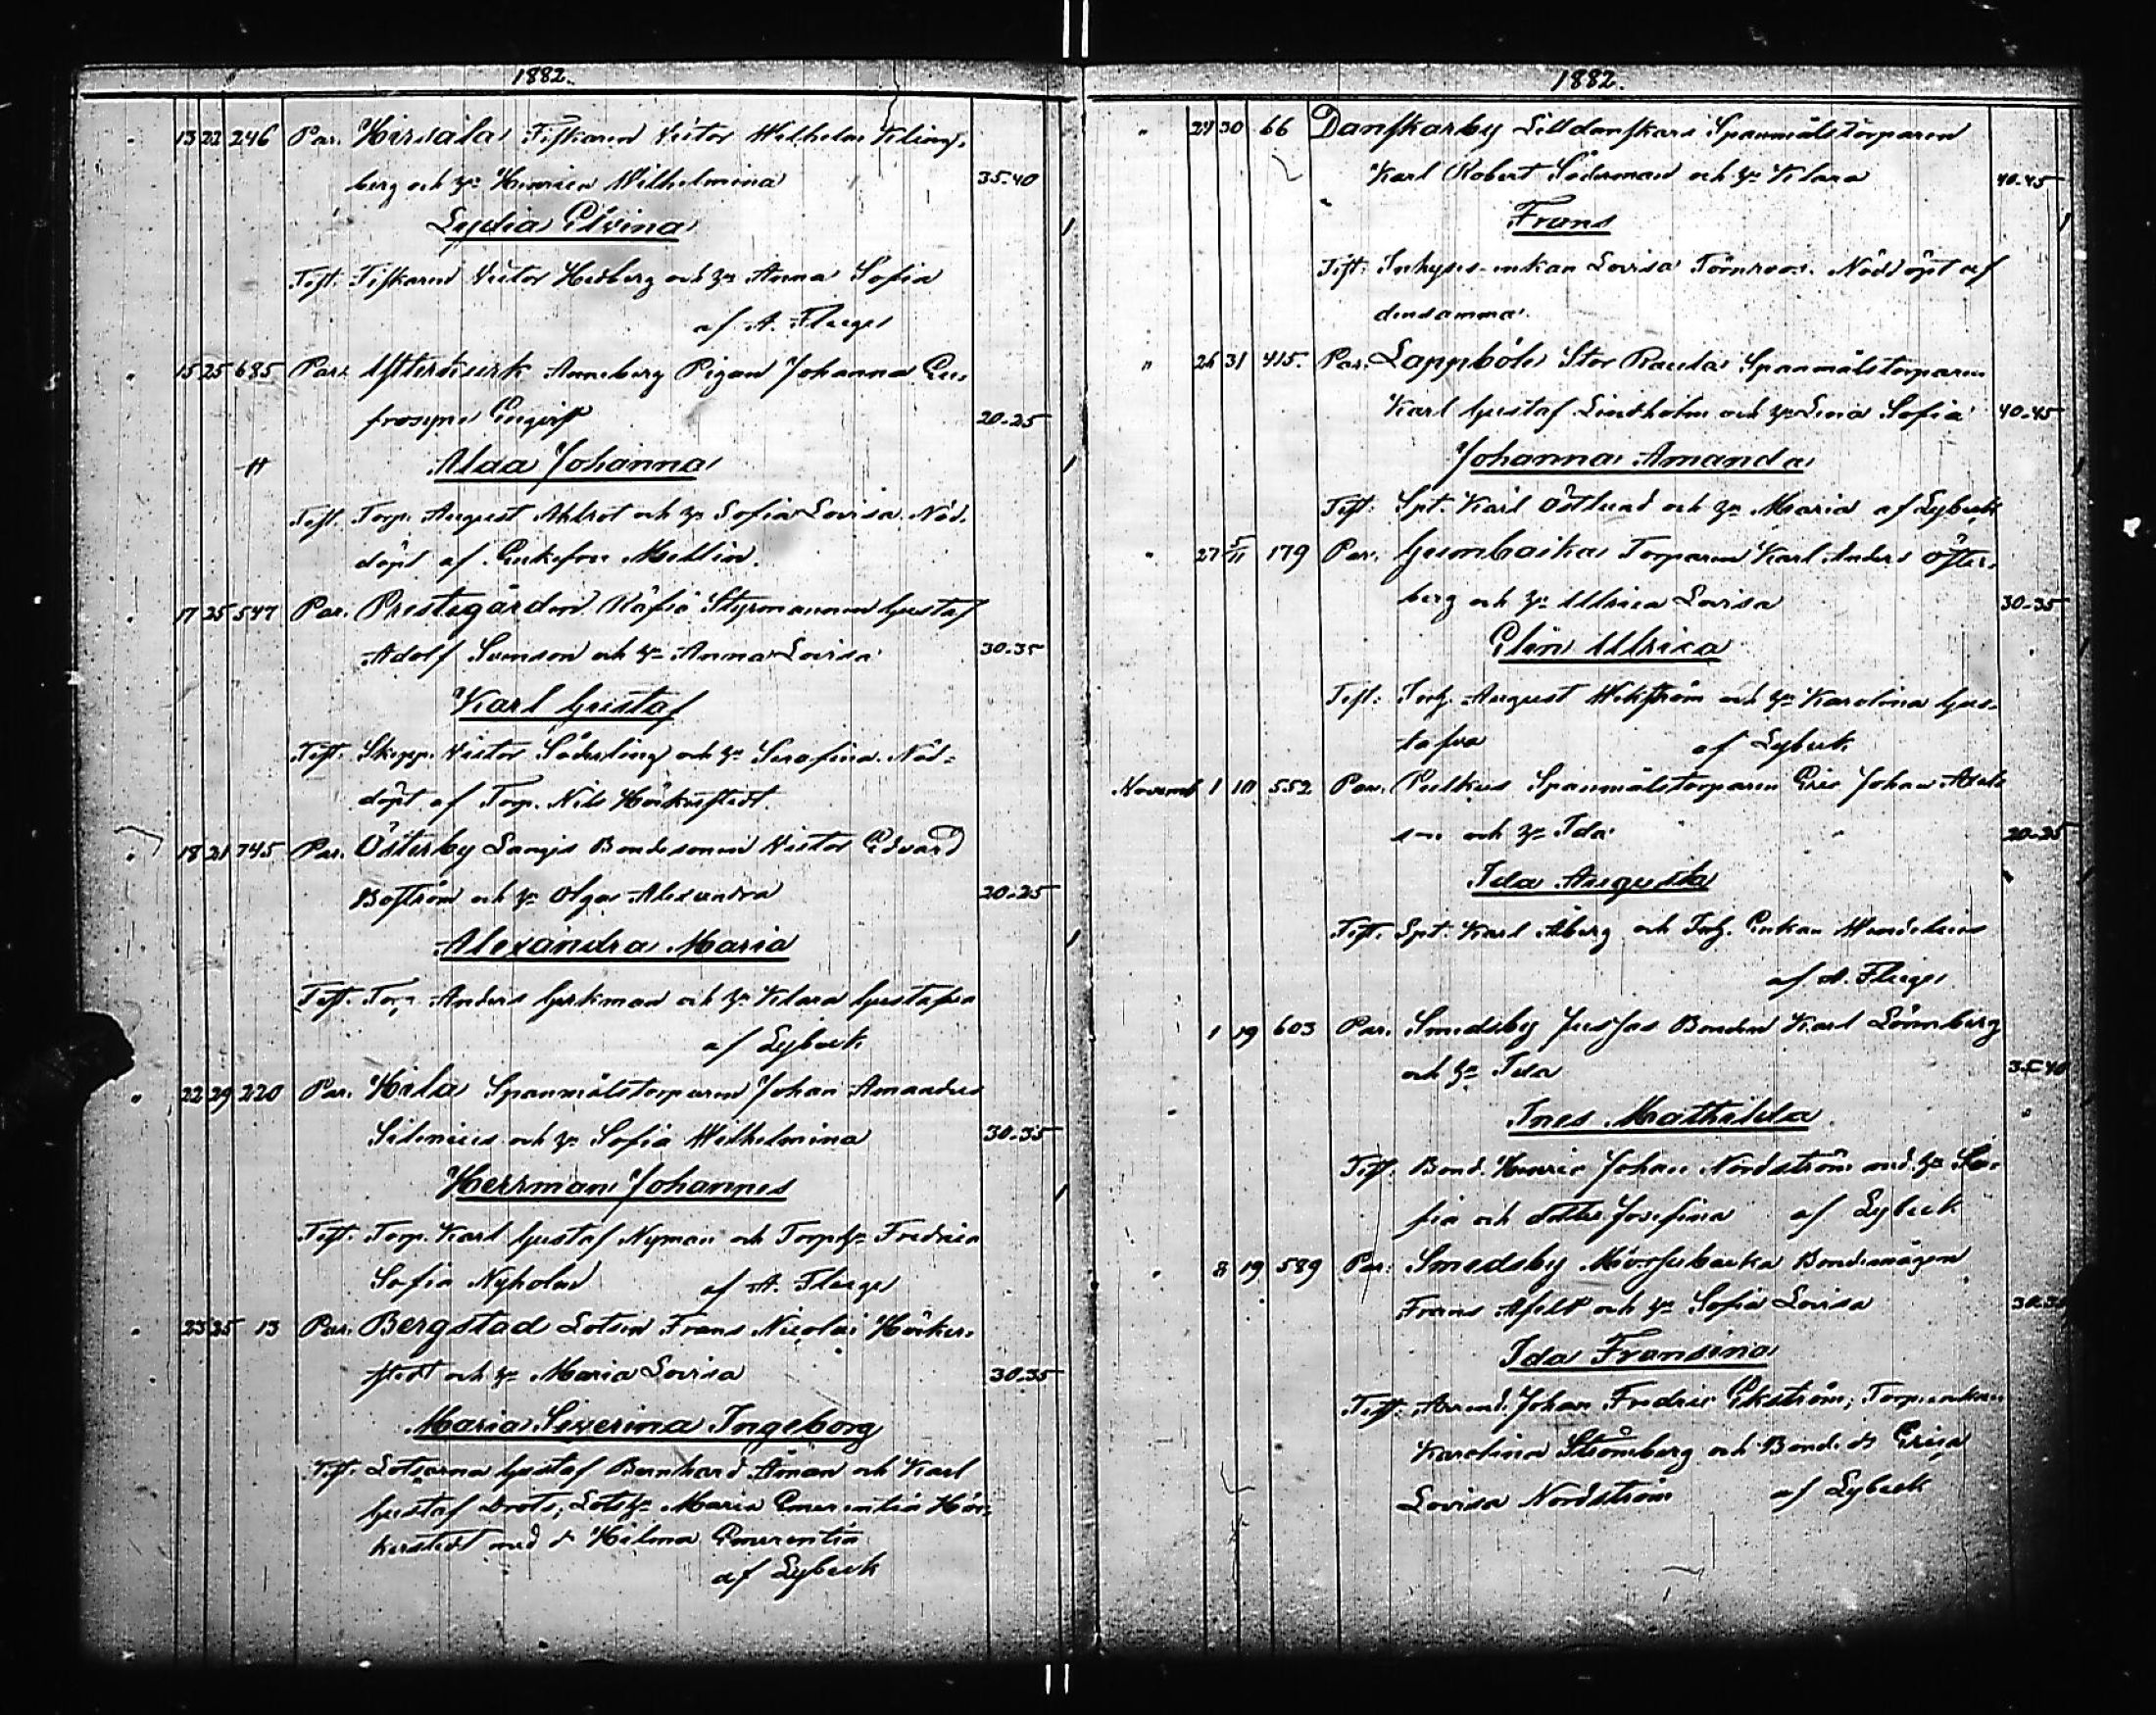 1882.
13 22 246 Par. Hirsala Fiskaren Victor Wilhelm Kling-
berg och hu Henrica Wilhelmina 35-40
Lydia Elvina
Test. Fiskaren Victor Hedberg och hu Anna Sofia
af A. Flege
15 25 685 Par. Österkurk Anneberg Pigan Johanna Eu-
frosyne Engist 20-25
H Alda Johanna
Test. Torp. August Ahlrot och hu Sofia Lovisa. Nöd-
döpt af Enkefru Mellin.
17 25 547 Par. Prestegården Räfsö Styrmannen Gustaf
Adolf Svenson och hu Anna Lovisa 30-35
Karl Gustaf
Test. Skepp. Victor Söderling och hu Serafina. Nöd-
döpt af Torp. Nils Höckerstedt.
18 21 745 Par. Österby Långis Bondesonen Victor Edvard
Boström och hu Olga Alexandra 20-25
Alexandra Maria
Test. Torp. Anders Gerkman och hu Klara Gustafva
af Lybeck
22 29 220 Par. Hila Spanmålstorparen Johan Amandus
Silenius och hu Sofia Wilhelmina 30-35
Herrman Johannes
Test. Torp. Karl Gustaf Nyman och Torphu Fredrica
Sofia Nyholm af A. Flege
23 25 13 Par. Bergstad Lotsen Frans Nicolai Höcker-
stedt och hu Maria Lovisa 30-35
Maria Severina Ingeborg
Test. Lotsarna Gustaf Bernhard Åman och Karl
Gustaf Drots, Lotshu Maria Emerentia Höc-
kerstedt med dr Hilma Emerentia
af Lybeck
1882.
" 24 30 66 Danskarby Lilldanskars Spanmålstorparen
Karl Robert Söderman och hu Klara 40-45
Frans
Test: Inhyses-enkan Lovisa Törnroos. Nöddöpt af
densamma.
" 26 31 415. Par. Lappböle Stor Rauda Spanmålstorparen
Karl Gustaf Lindholm och hu Lena Sofia 40-45
Johanna Amanda
Test: Spt. Karl Östlund och hu Maria af Lybeck
" 27 5/11 179 Par. Gumbacka Torparen Karl Anders Öster-
berg och hu Ulrica Lovisa 30-35
Elin Ulrica
Test: Torp. August Wikström och hu Karolina Gus-
tafva af Lybeck
Novemb 1 10 552 Par. Pelkus Spanmålstorparen Eric Johan Axels
son och hu Ida 20-25
Ida Augusta
Test. Spt. Karl Åberg och Inh. Enkan Wendelius
af A. Flege
1 19 603 Par. Smedsby Jusjas Bonden Karl Lönnberg
och hu Ida 35-40
Ines Mathilda
Test. Bond. Henric Johan Nordström med hu So-
fia och dotter Josefina af Lybeck
8 19 589 Par: Smedsby Bondemågen
Frans Afelt och hu Sofia Lovisa 30-35
Ida Fransina
Test: Arrend. Johan Fredric Ekström, Torp.enkan
Karolina Strömberg och Bond. dr Erica
Lovisa Nordström af Lybeck